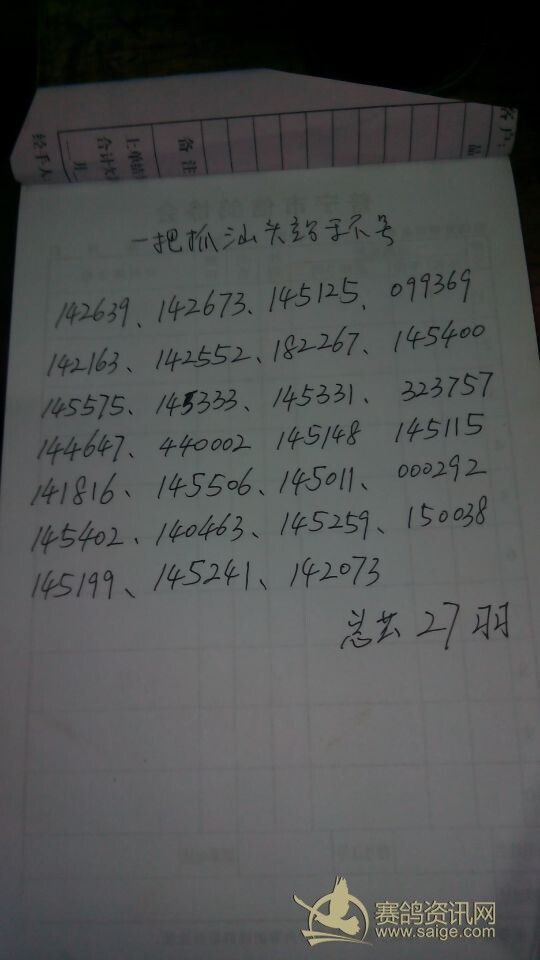 客户:
品
备注
上单结
合计欠
月
经手人
一把抓汕头站手环号
142639、142673、145125、099369
142163、142552、182267、145400
145575、145333、145331、323757
144647、440002、145148 145115
141816、145506、145011、000292
145402、140463、145259、150038
145199、145241、142073
总共27羽
赛鸽资讯网
www.saige.com